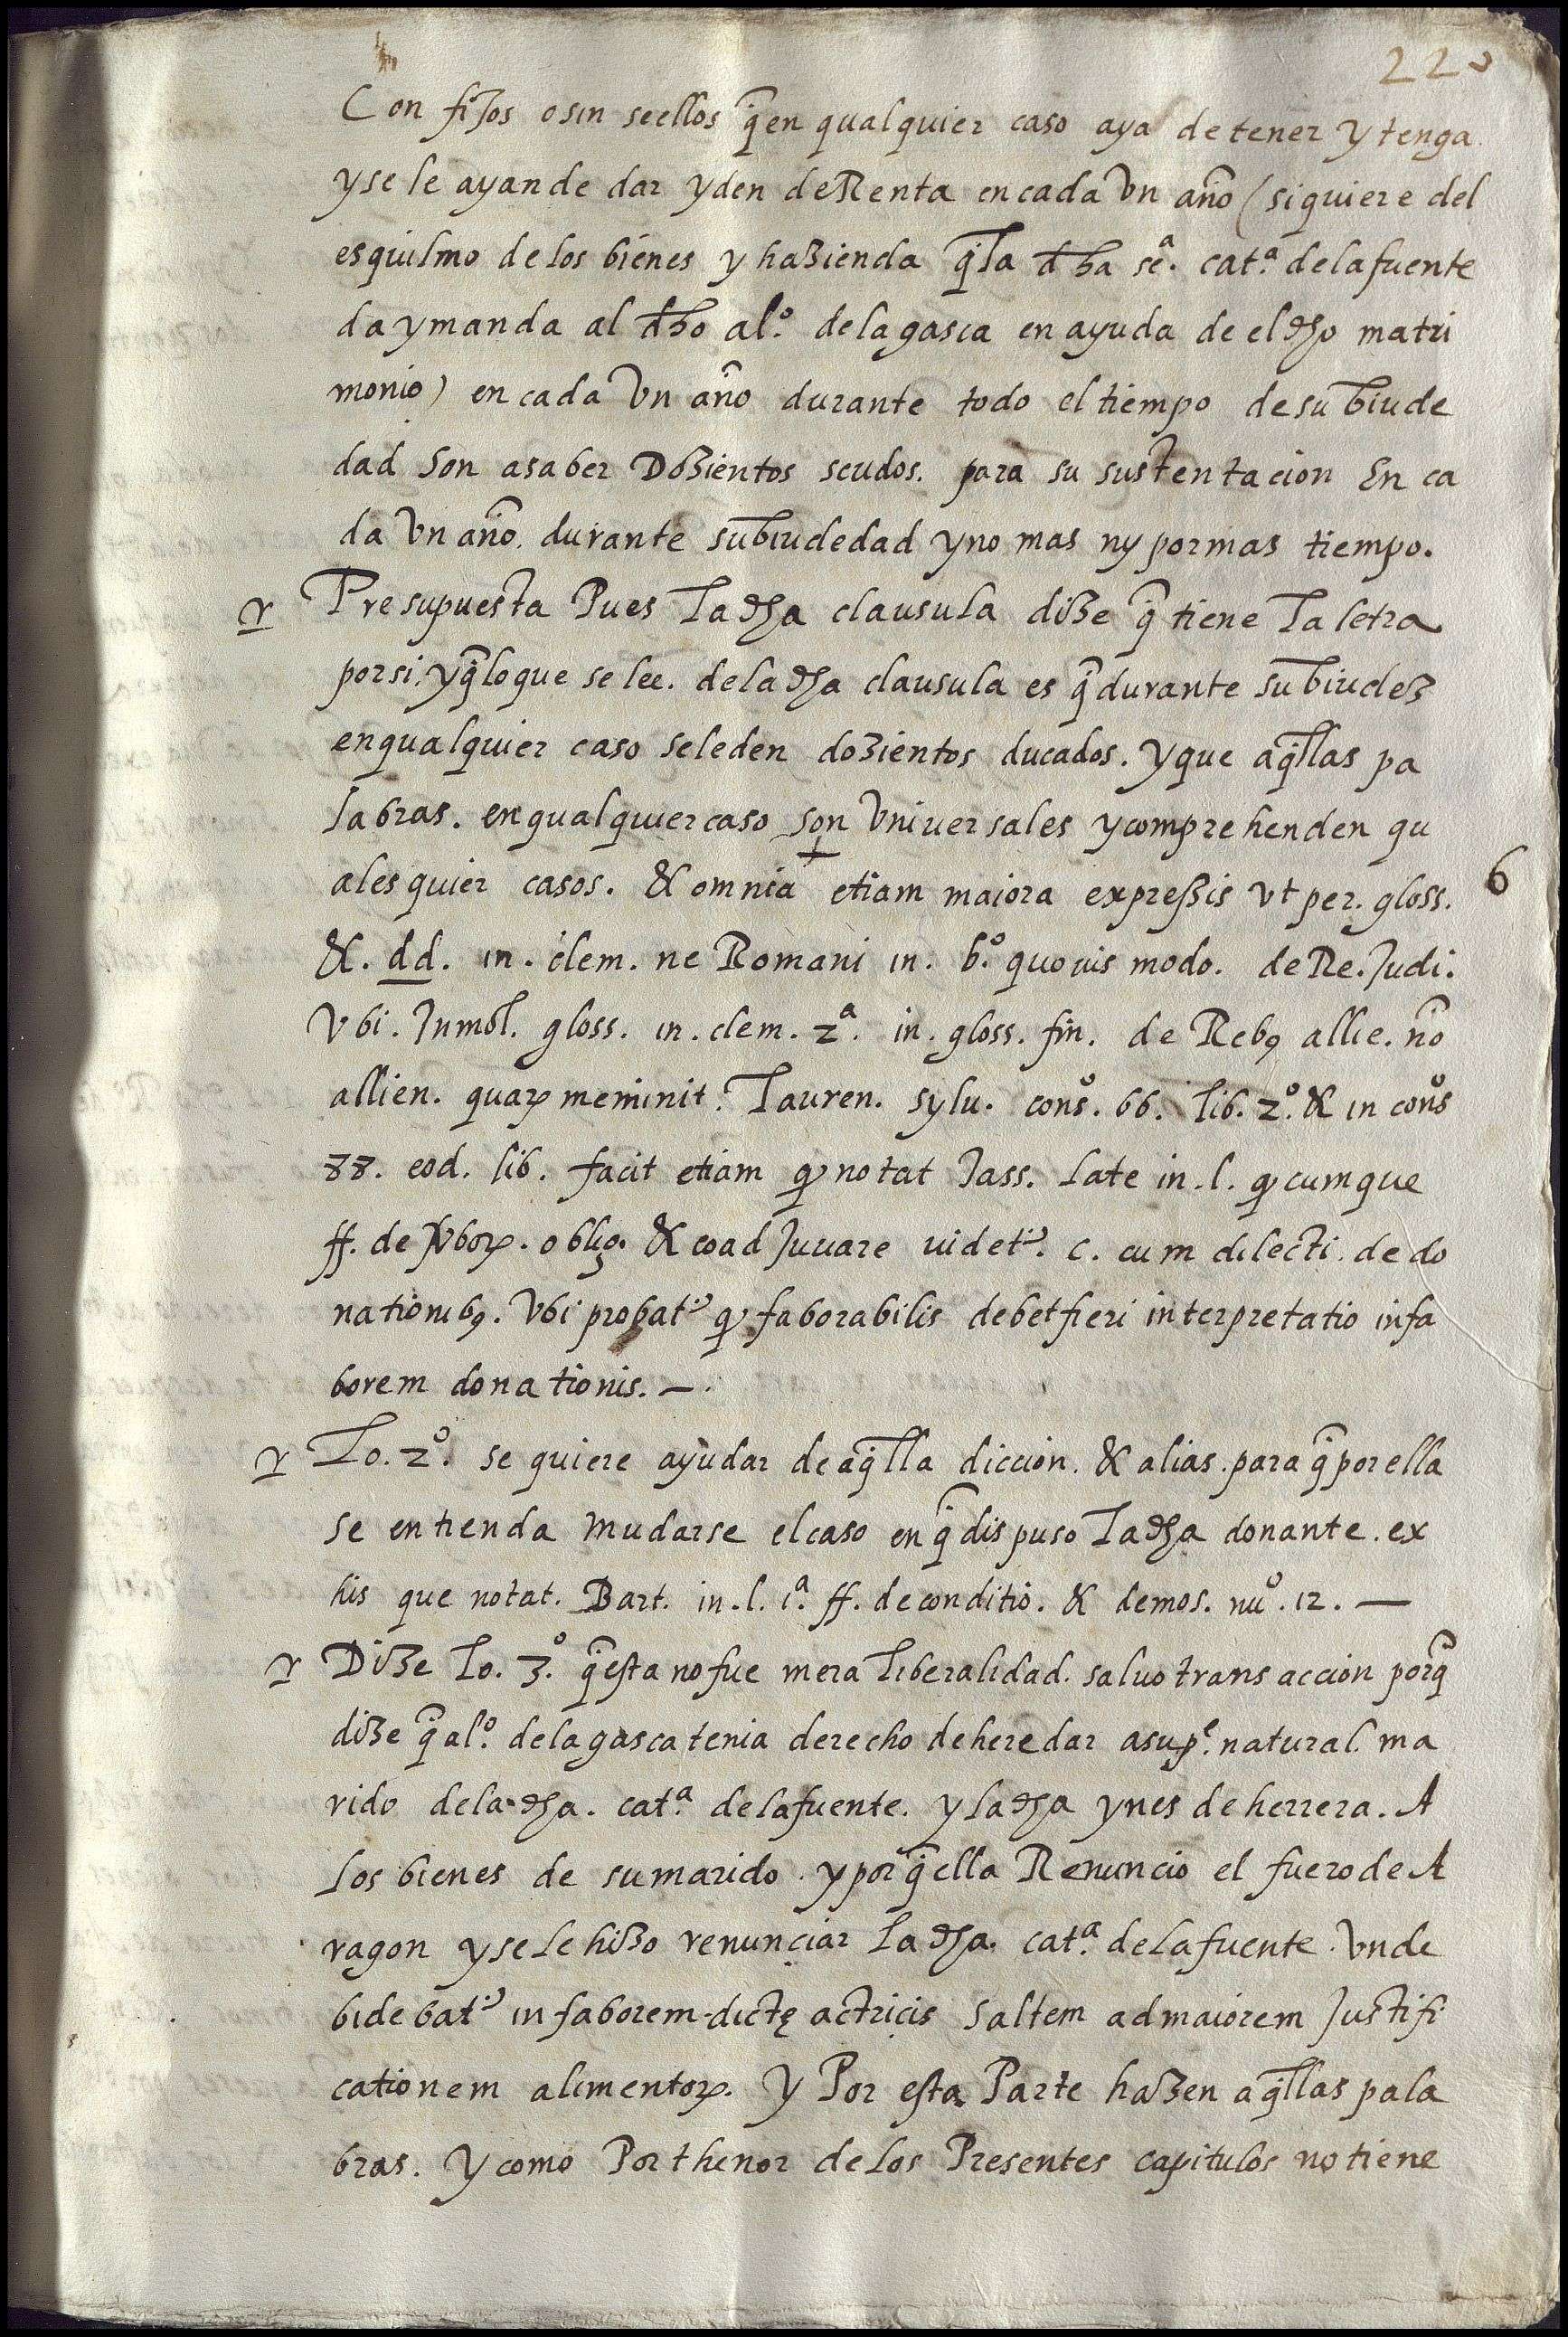 220
Con fijos o sin seellos q̃ en qualquier caso aya de tener y tenga
y se le ayan de dar y den de Renta en cada Vn año (siquiere del
esquilmo de los bienes y hazienda q̃ la dha sª. catª. de la fuente
da y manda al dho alº. de la gasca en ayuda de el dho matri
monio) en cada Vn año durante todo el tiempo de su biude
dad son a saber Dozientos scudos. para su sustentacion En ca
da Vn año. durante su biudedad y no mas ny por mas tiempo.
Presupuesta Pues la dha clausula dize q̃ tiene la letra
por si. y q̃ lo que se lee. de la dha clausula es q̃ durante su biudez
en qualquier caso se le den dozientos ducados. y que aq̃llas pa
labras. en qualquier caso son Vniuersales y comprehenden qu
ales quier casos. & omnia etiam maiora expressis Vt per. gloss. 6
&. dd. in. clem. ne Romani in. bº. quouis modo. de Re. Judi.
Vbi. Jnmol. gloss. in. clem. 2ª. in. gloss. fin. de Rebꝯ allie. nõ
allien. quaꝝ meminit. Lauren. sylu. consº. 66. lib. 2º. & in consº
88. eod. lib. facit etiam qꝫ notat Jass. late in. l. qꝫ cumque
ff. de Vboꝝ. oblig. & coadJuuare uidetᷣ. c. cum dilecti. de do
nationibꝯ. Vbi probatᷣ qꝫ faborabilis debet fieri interpretatio in fa
borem donationis. —.
Lo. 2º. se quiere ayudar de aq̃lla diccion. & alias. para q̃ por ella
se entienda mudarse el caso en q̃ dispuso la dha donante. ex
his que notat. Bart. in. l. 1ª. ff. de conditio. & demos. nuº. 12. —
Dize lo. 3º. q̃ esta no fue mera liberalidad. saluo transaccion porq̃
dize q̃ alº. de la gasca tenia derecho de heredar a su pᵉ. natural. ma
rido de la dha. catª. de la fuente. y la dha ynes de herrera. A
los bienes de su marido. y porq̃ ella Renuncio el fuero de A
ragon y se le hizo renunciar la dha. catª. de la fuente. Vnde
bidebatᷣ in faborem dictę actricis saltem ad maiorem Justifi
cationem alimentoꝝ. y Por esta Parte hazen aq̃llas pala
bras. y como Por thenor de los Presentes capitulos no tiene